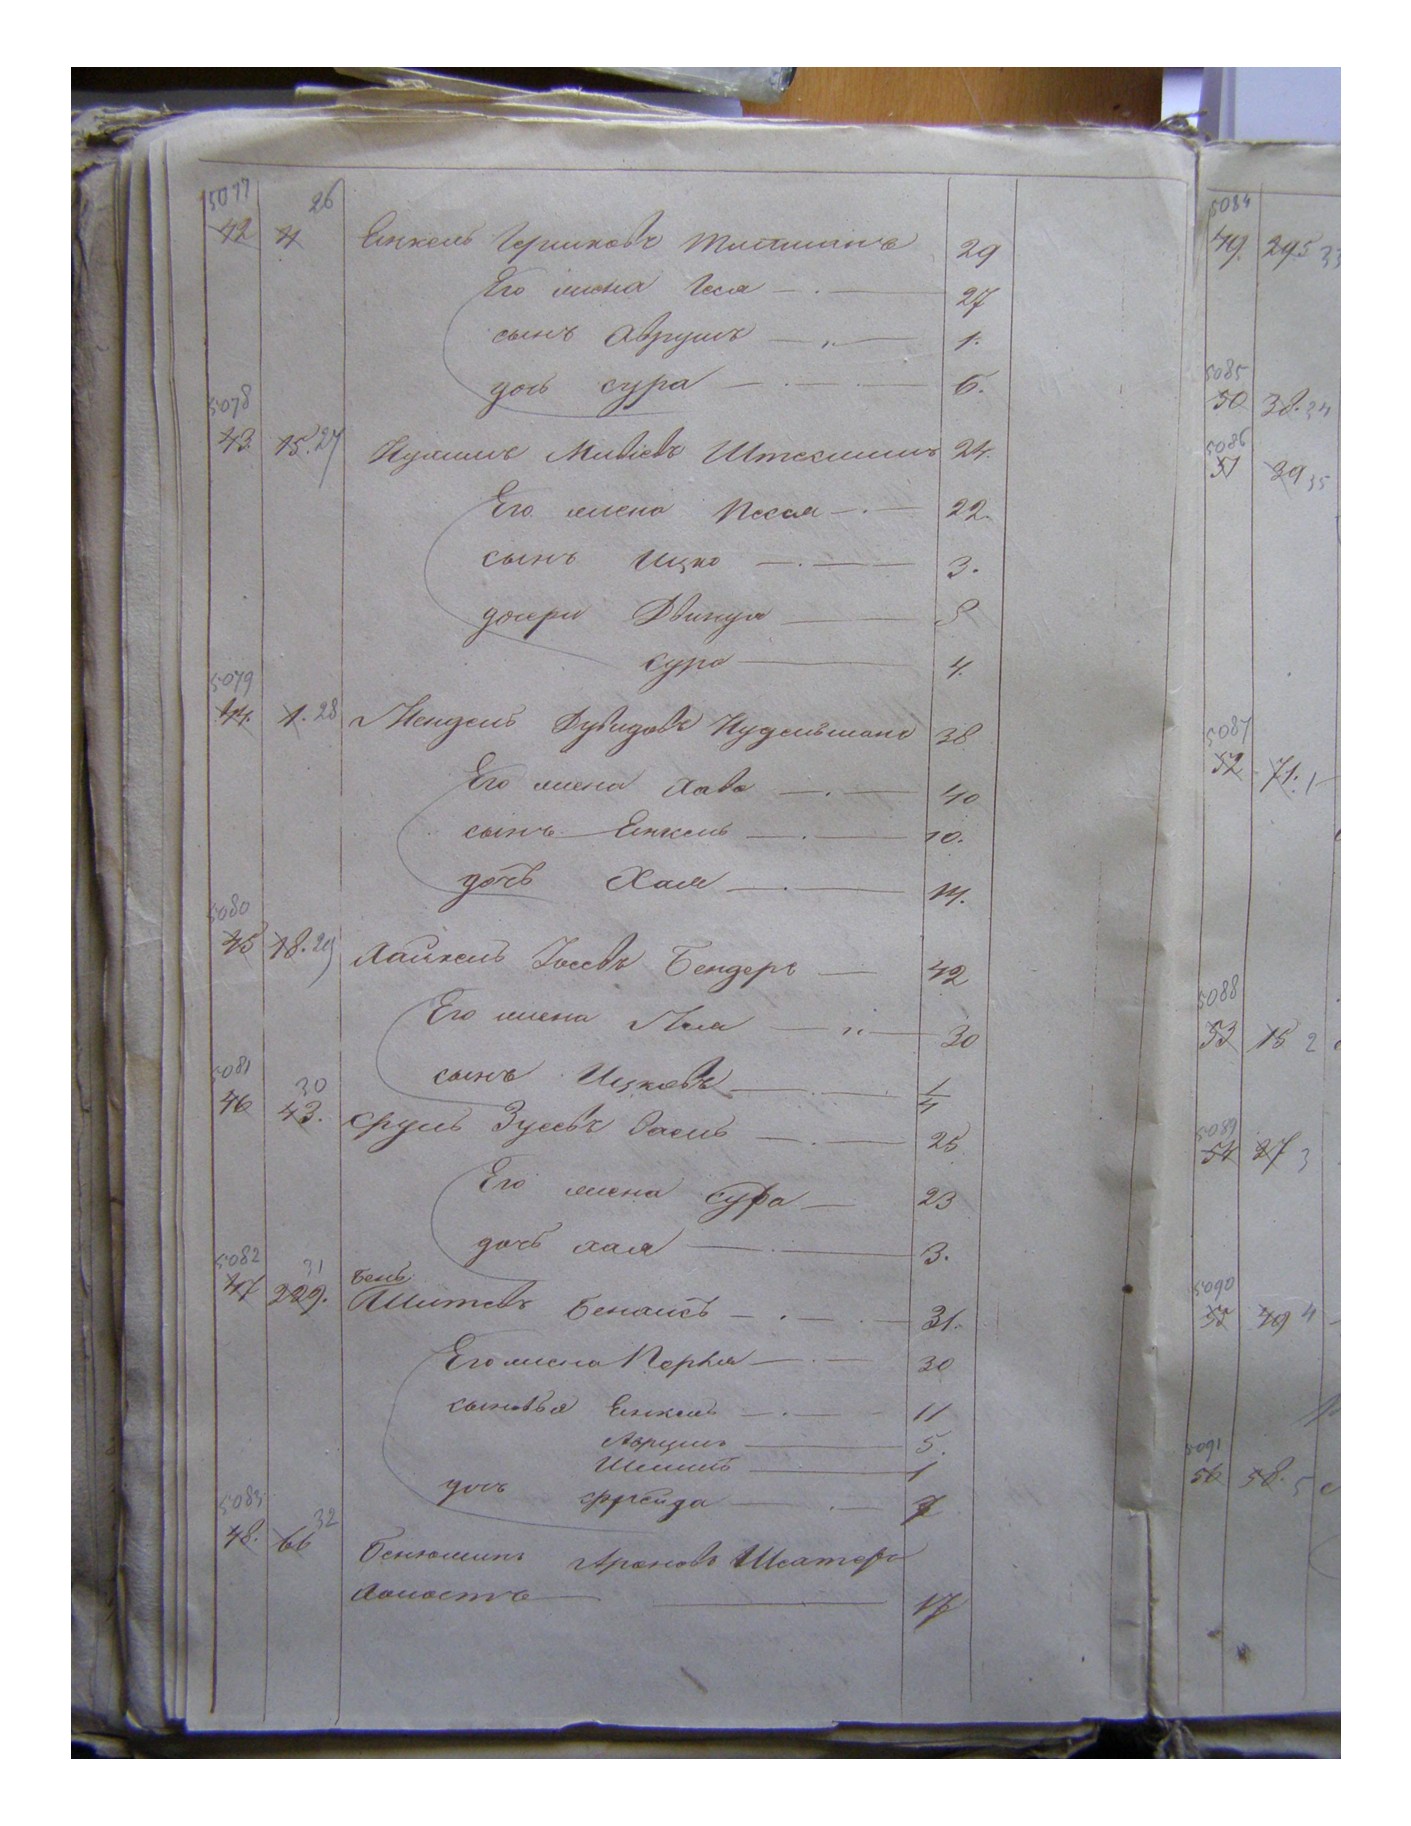 5077 26
42 4 Енкель Гершковъ 29
Его жена Геся 27
сынъ Аврумъ 1.
дочь сура 6.
5078
43. 15. 27 Нухимъ 24.
Его жена Песся 22.
сынъ Ицко 3.
дочери Двинуя 5
сура 4.
5079
44. 1. 28 Мендель Дувидовъ Нудельманъ 38
Его жена Хава 40
сынъ Енкель 10.
дочь Хая 14.
5080
45 18. 29 Хаймель Iосевъ Бендеръ 42
Его жена Лея 30
5081 сынъ Ицковъ 1/4
30
46 43. Сруль Зусевъ 25
Его жена сура 23
дочь хая 3.
5082 31
47 229. Бень
Шитевъ Бенаисъ 31.
Его жена Перля 30
сыновья Енкель 11
Аврумъ 5.
1
дочь Фрейда 7
5083 32
48. 66 Бенюминъ Ароновъ 
Холостъ 17
5084
49. 295 33
5085
50 38. 34
5086
51 39 35
5087
52 71. 1
5088
53 15 2
5089
54 27 3
5090
55 49 4
5091
56 58. 5